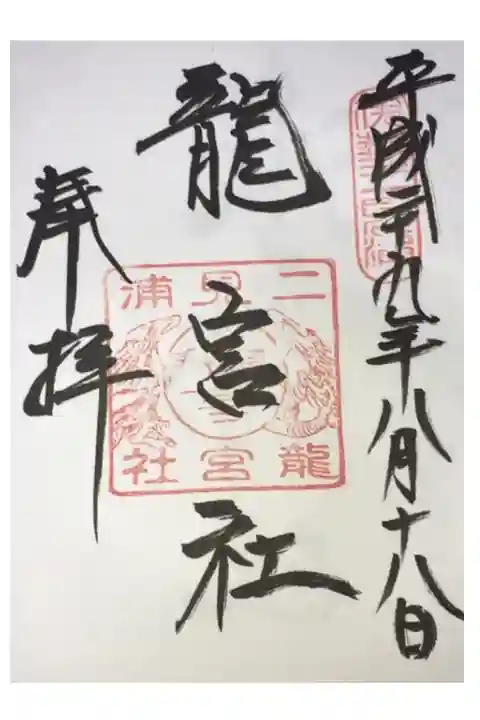 平成二十九年八月十八日
龍宮社
奉拝
二見浦
龍宮社